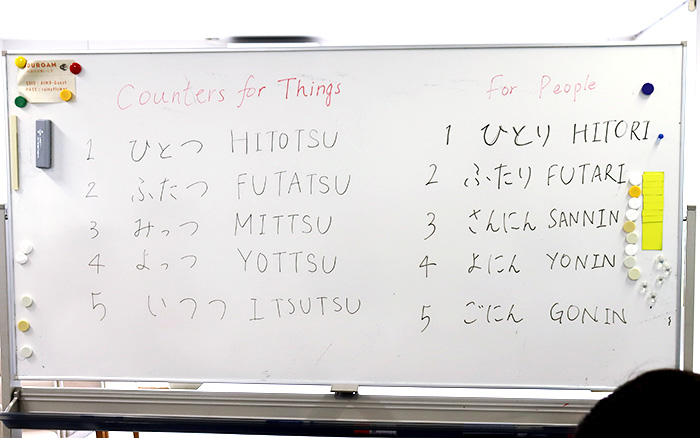 Counters for Things
1 ひとつ HITOTSU
2 ふたつ FUTATSU
3 みっつ MITTSU
4 よっつ YOTTSU
5 いつつ ITSUTSU
For People
1 ひとり HITORI
2 ふたり FUTARI
3 さんにん SANNIN
4 よにん YONIN
5 ごにん GONIN